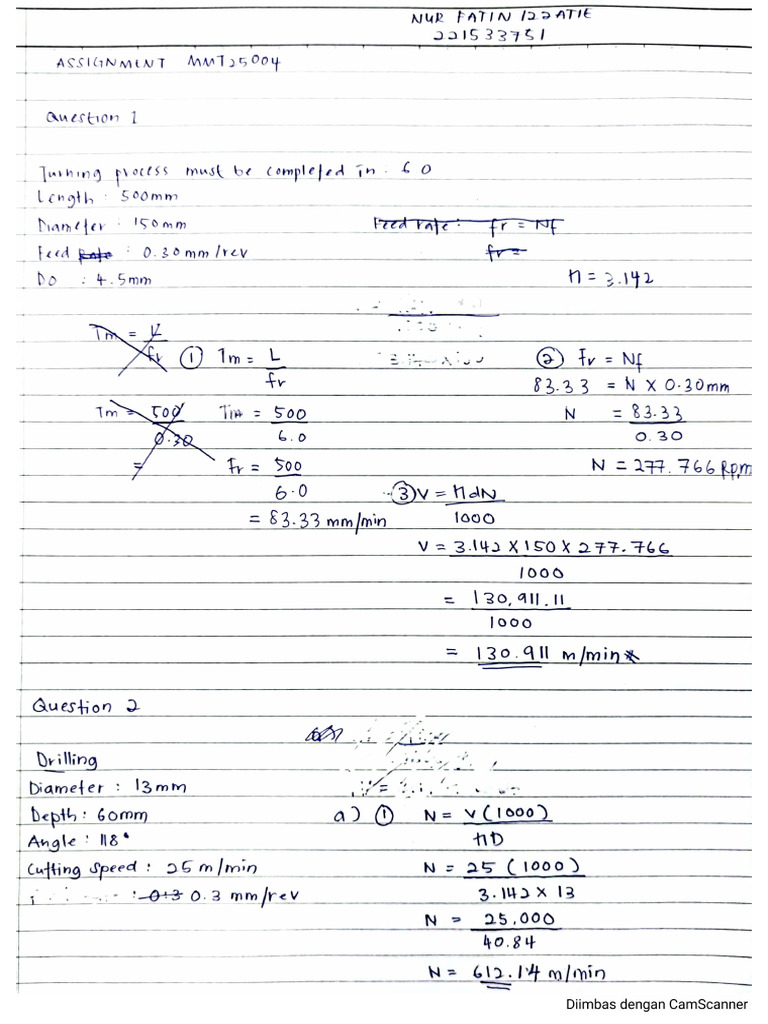 NUR FATIN IZZATIE
221533751
ASSIGNMENT MMT25004
Question 1
Turning process must be completed in : 6.0
Length : 500mm
Diameter : 150mm
Feed rate : fr = Nf
Feed rate : 0.30 mm/rev
fr =
DO : 4.5mm
π = 3.142
Tm = L / fr
① Tm = L / fr
② Fr = Nf
83.33 = N x 0.30mm
Tm = 500 / 0.30
Tm = 500 / 6.0
N = 83.33 / 0.30
=
Fr = 500 / 6.0
N = 277.766 Rpm
= 83.33 mm/min
③ V = πdN / 1000
V = 3.142 x 150 x 277.766 / 1000
= 130,911.11 / 1000
= 130.911 m/min*
Question 2
Drilling
Diameter : 13mm
Depth : 60mm
a) ① N = V(1000) / πD
Angle : 118°
Cutting speed : 25 m/min
N = 25 (1000) / 3.142 x 13
: 0.3 0.3 mm/rev
N = 25,000 / 40.84
N = 612.14 m/min
Diimbas dengan CamScanner